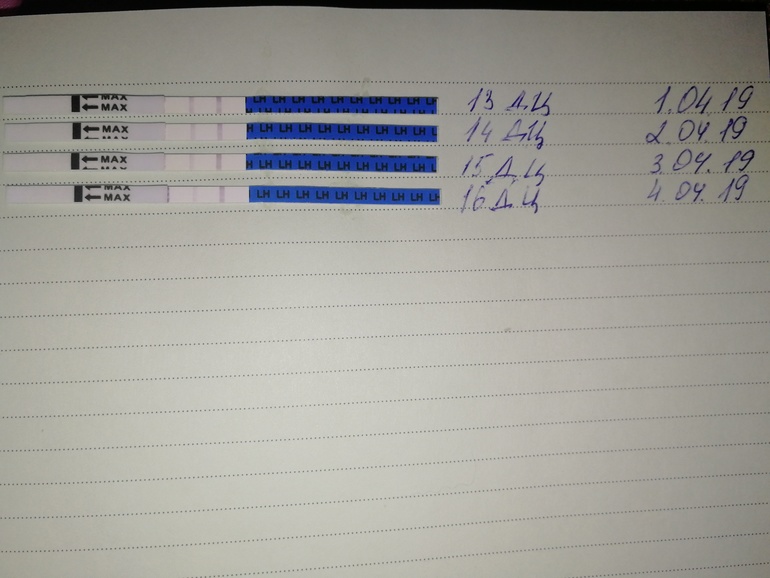 MAX
MAX LH LH LH LH LH LH LH LH LH 13 ДЦ 1.04.19
MAX LH LH LH LH LH LH LH LH LH 14 ДЦ 2.04.19
MAX LH LH LH LH LH LH LH LH LH 15 Д.Ц 3.04.19
MAX
MAX LH LH LH LH LH LH LH LH LH 16 Д.Ц 4.04.19